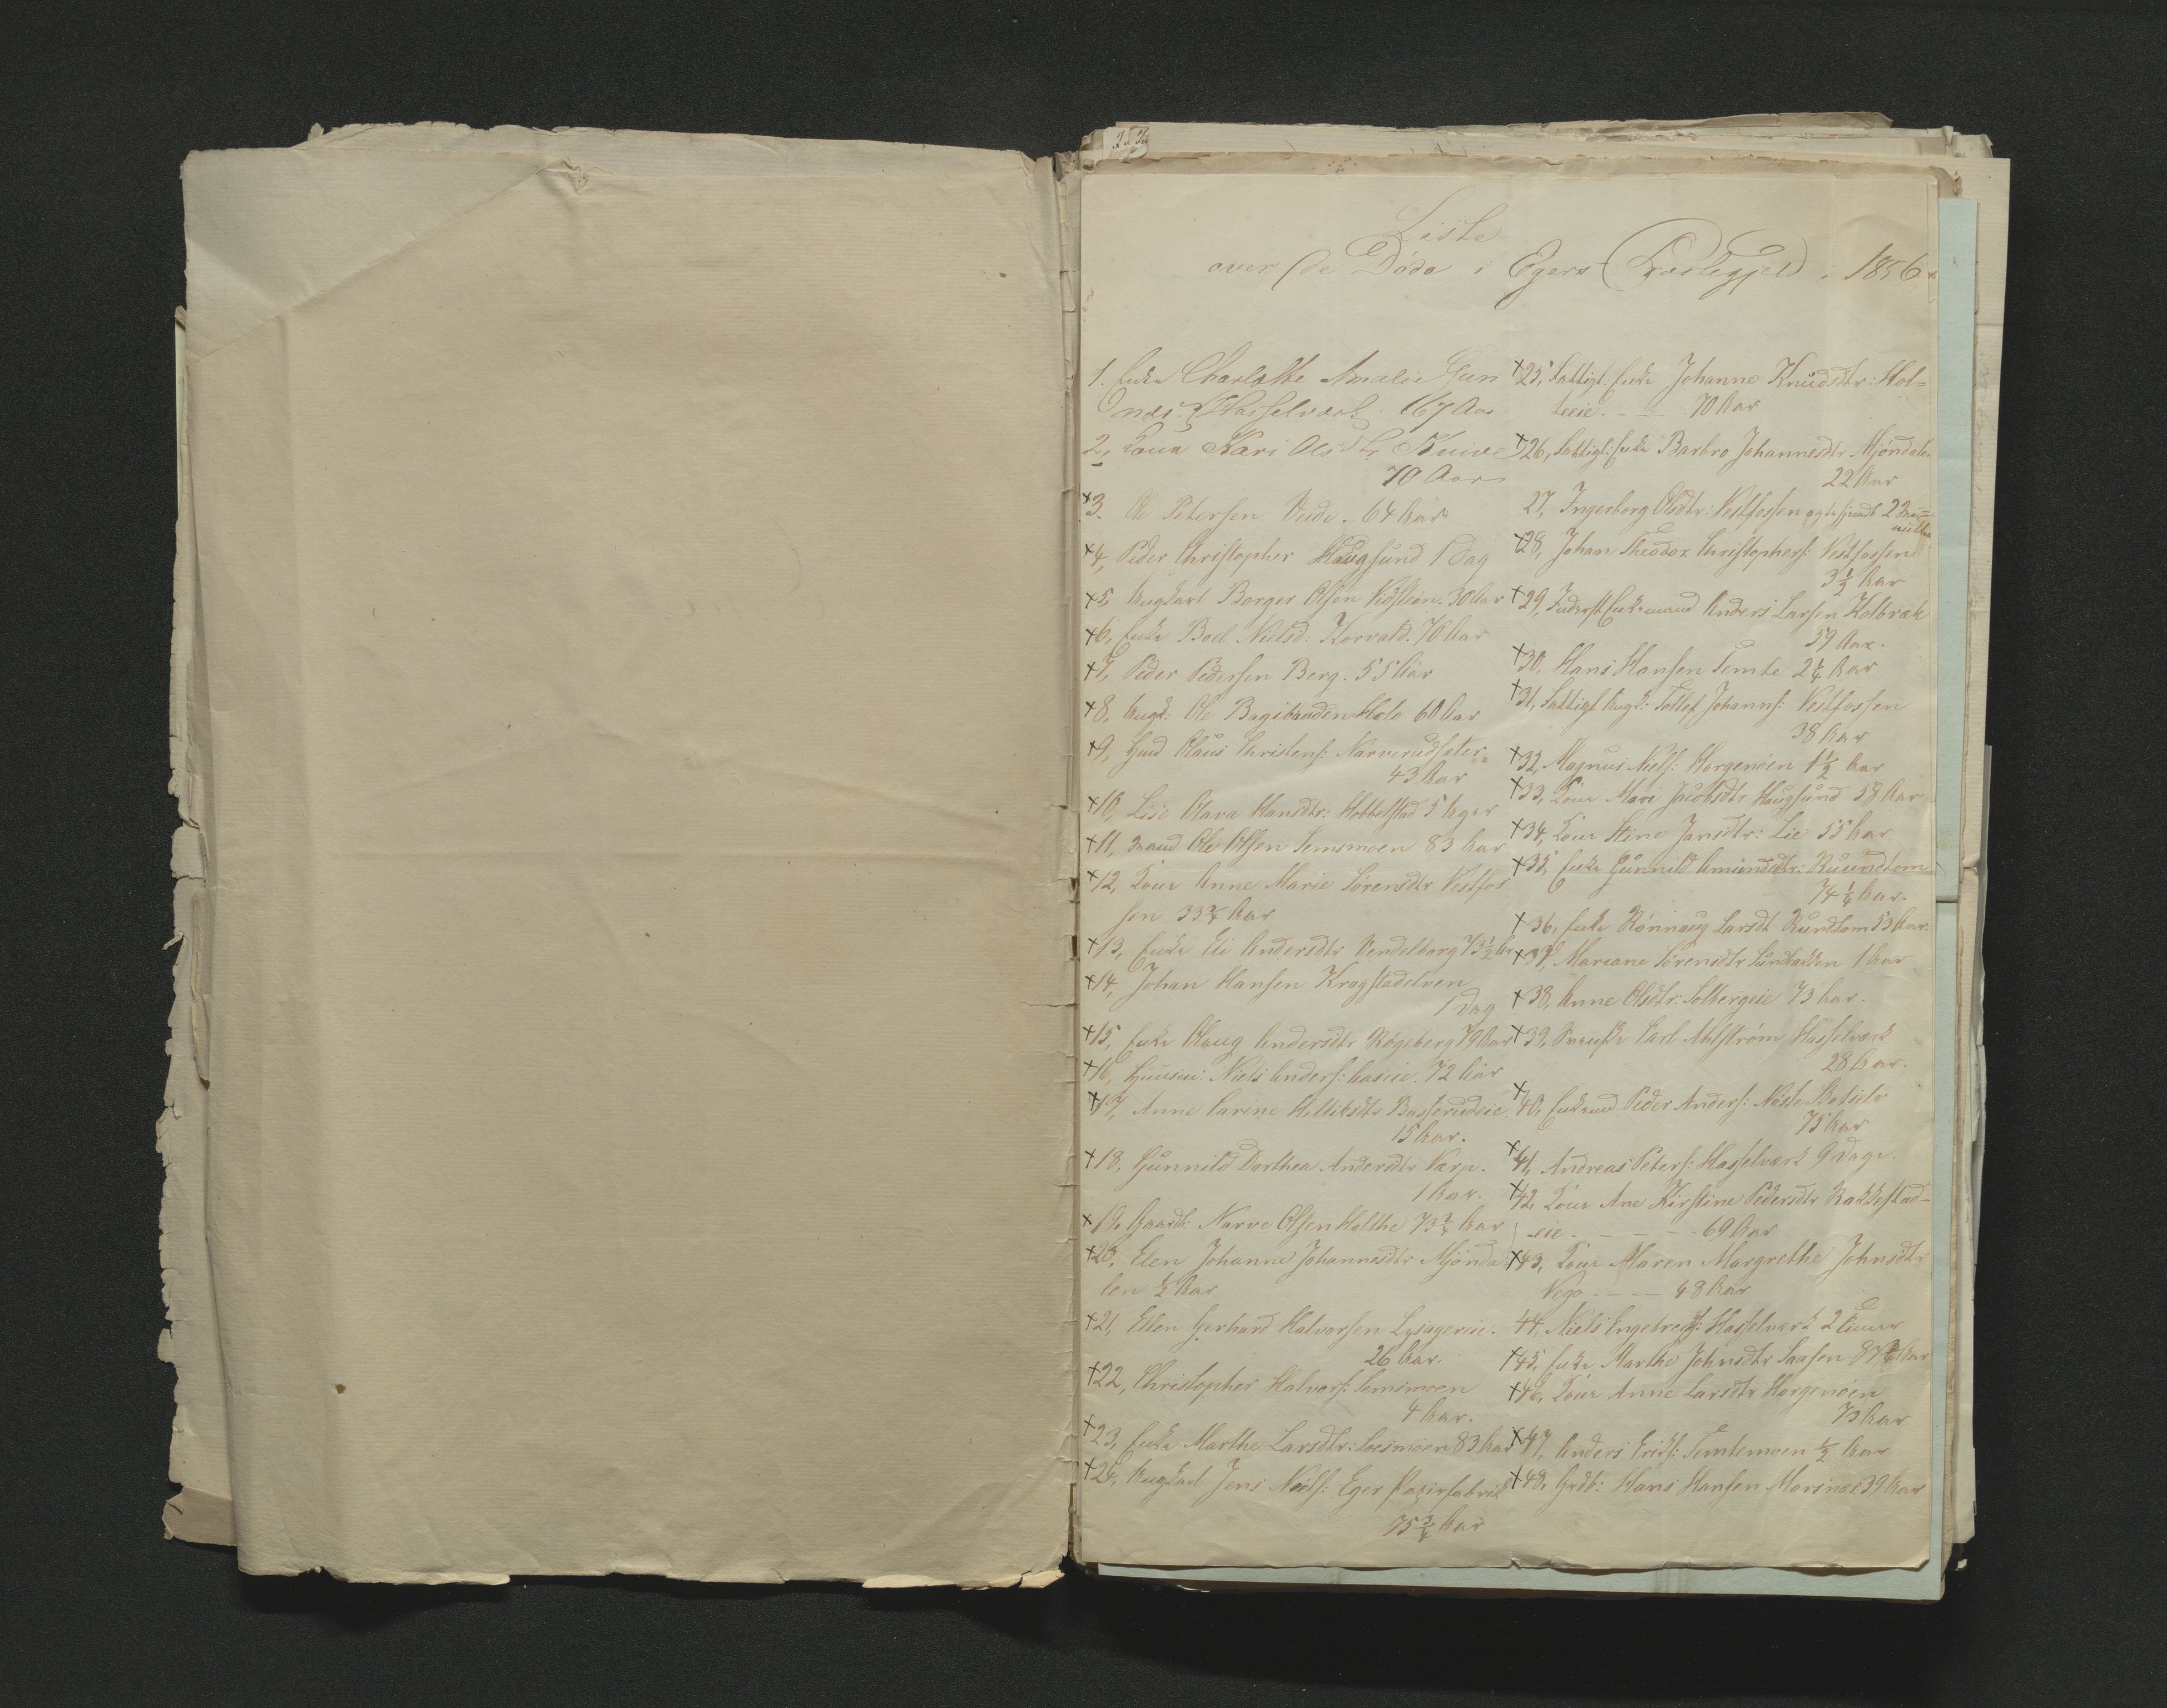 Liste
over de Døde i Egers Præstegjeld i 1856
1. Enke Charlotte Amalie
Hasselværk 67 Aar
2, Kone Kari Olsdtr
70 Aar
+3. Ole Petersen Veide. 64 Aar
+4, Peder Christopher Haugsund 1 Dag
+5, Ungkarl Borger Olsen 30 Aar
+6, Enke Boel Nielsd: Korvald. 70 Aar
+7, Peder Pedersen Berg. 55 Aar
+8, Ungk: Ole 60 Aar
+9, Gmd Olaus Christens:
43 Aar
+10, Lise Olava Hansdtr: Hobbelstad 5 Uger
+11, Mand Ole Olsen Semsmoen 83 Aar
+12, Kone Anne Marie Sørensdtr Vestfos
sen 33 3/4 Aar
+13, Enke Eli Andersdtr Vendelborg 73 1/2 Ar
+14, Johan Hansen Kragstadelven
1 Dag
+15, Enke Olaug Andersdtr Røgeberg 79 Aar
+16, Niels Anders: 72 Aar
+17, Anne Carine
15 Aar.
+18, Gunnild Dorthea Andersdtr Varp.
1 Aar.
+19, Gaardb: Narve Olsen Holthe 73 3/4 Aar
+20, Elen Johanne Johannesdtr Mjønda
len 1/2 Aar
+21, Ellen Gerhard Halvorsen
26 Aar.
+22, Christopher Halvors: Semsmoen
4 Aar.
+23, Enke Marthe Larsdtr: Loesmoen 83 Aar
+24, Ungkarl Jens Niels: Eger Papirfabrik
75 3/4 Aar
+25, Fattigl. Enke Johanne Knudsdtr: Hol=
teeie. - - - 70 Aar
+26, Fattigl: Enke Barbro Johannesdtr Mjøndale
22 Aar
27, Ingeborg Olsdtr: Vestfossen 2 Mi=
nutter
+28, Johan Theodor Christophers: Vestfossen
3 1/2 Aar
+29, Inderst Enkemand Anders Larsen Holbræk
59 Aar.
+30, Hans Hansen Temte 2 1/4 Aar
+31, Fattigl Ungk: Tollef Johanns: Vestfossen
38 Aar
+32, Magnus Niels: Horgenøen 1 1/2 Aar
+33, Kone Mari Jacobsdtr Haugsund 58 Aar
+34, Kone Stine Jansdtr: Lie 55 Aar
+35, Enke Gunnild Amundsdtr: Ruundtom
74 1/4 Aar.
+36, Enke Rønnaug Larsdt Rundtom 53 Aar.
+37, Mariane Sørensdtr 1 Aar
+38, Anne Olsdtr: Solbergeie 73 Aar.
+39, Carl Ahlstrøm Hasselværk
28 Aar.
+40, Enkemd Peder Anders:
75 Aar
+41, Andreas Peters: Hasselværk 9 Dage.
+42, Kone Ane Kirstine Pedersdtr Rakkestad-
eie - - - - - 69 Aar
+43, Kone Maren Margrethe Johnsdtr
Vego - - - - 48 Aar
44, Niels Engebrets: Hasselværk 2 Timer
+45, Enke Marthe Johnsdtr Saasen Aar
+46, Kone Anne Larsdtr Horgenøen
73 Aar
+47, Anders Eriks: Temtemoen 1/2 Aar
+48, Grdb: Hans Hansen 39 Aar